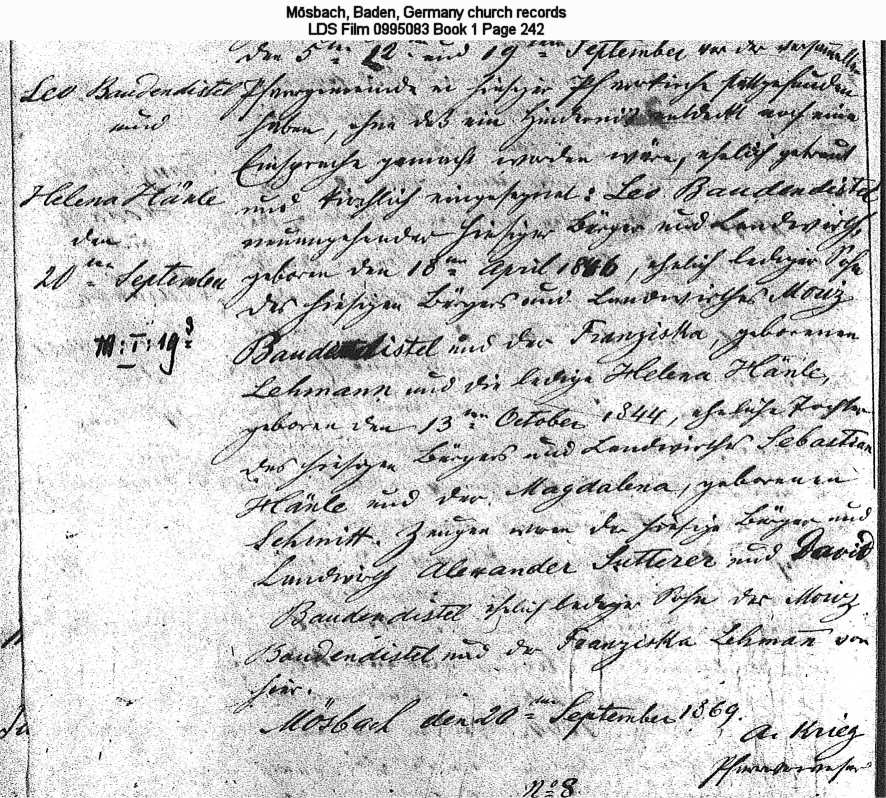 Mösbach, Baden, Germany church records
LDS Film 0995083 Book 1 Page 242
den 5ten 12ten und 19ten September vor der versammelten
Leo Baudendistel
und
Helena Hänle
den
20ten September
M: I: 19
Pfarrgemeinde in hiesiger Pfarrkirche stattgefunden
haben, ohne daß ein Hinderniß entdeckt noch eine
Einsprache gemacht worden wäre, ehelich getraut
und kirchlich eingesegnet: Leo Baudendistel
neuangehender hiesiger Bürger und Landwirth,
geboren den 18ten April 1846, ehelich lediger Sohn
des hiesigen Bürgers und Landwirthes Moriz
Baudendistel und der Franziska, geborenen
Lehmann und die ledige Helena Hänle,
geboren den 13ten October 1844, eheliche Tochter
des hiesigen Bürgers und Landwirthes Sebastian
Hänle und der Magdalena, geborenen
Schmitt. Zeugen waren der hiesige Bürger und
Landwirth Alexander Sutterer und David
Baudendistel ehelich lediger Sohn des Moriz
Baudendistel und der Franziska Lehmann von
hier.
Mösbach den 20ten September 1869.
A. Krieg
Pfarrverweser
No 8